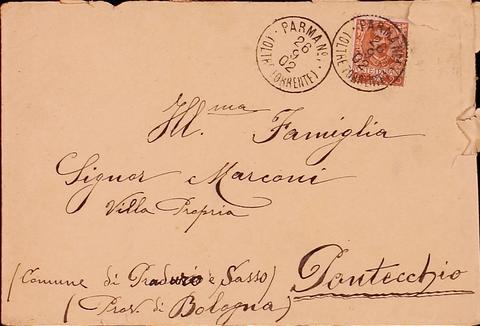 PARMA N°1
(OLTRE TORRENTE)
26
9
02
PARMA N°1
(OLTRE TORRENTE)
26
9
02
Ill.ma Famiglia
Signor Marconi
Villa Propria
(Comune di Praduro e Sasso)
Pontecchio
(Prov. di Bologna)